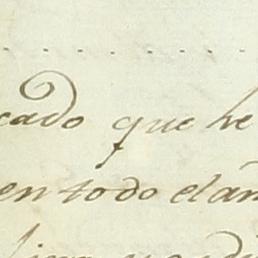 cado que he
en todo el an